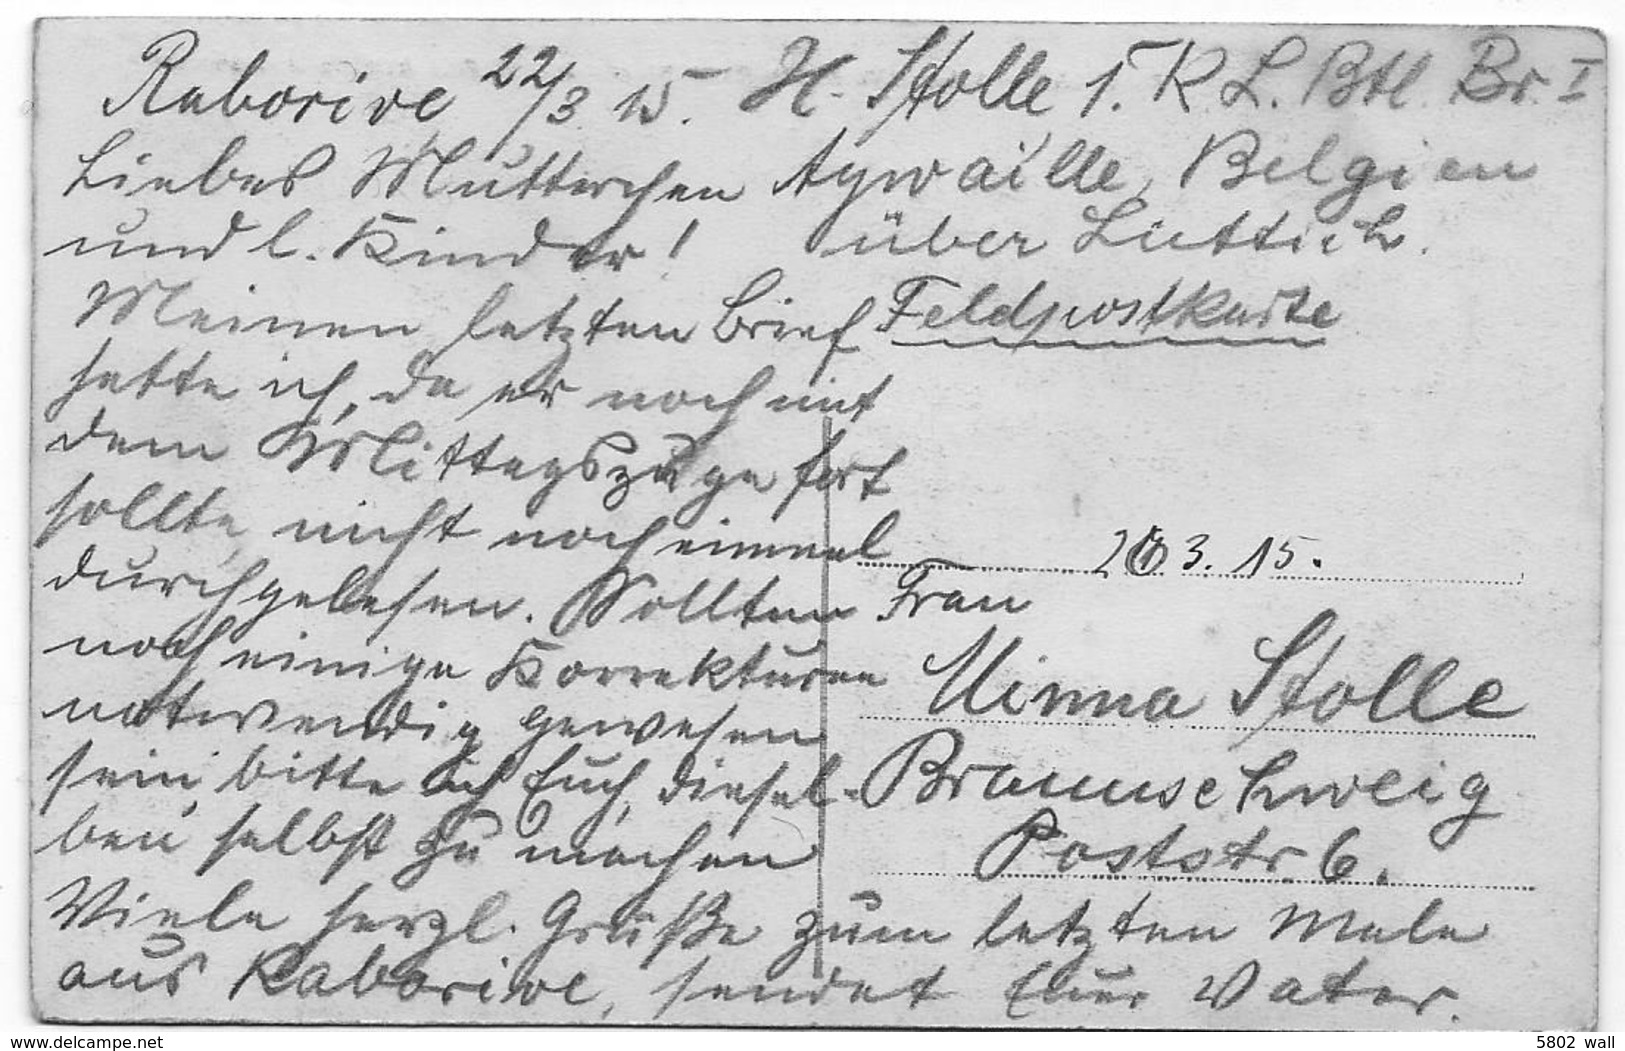 Raborive 22/3. 15.
Liebes Mutterchen
und l. Kinder!
Meinen letzten Brief
hatte ich, da er noch mit
dem Mittagszuge fort
sollte, nicht noch einmal
durchgelesen. Sollten
noch einige Korrekturen
notwendig gewesen
sein, bitte ich Euch, diesel-
ben selbst zu machen
Viele herzl. Grüße zum letzten Male
aus Raborive, sendet Euer Vater.
H. Stolle 1. K L. Btl. Br. I
Aywaille, Belgien
über Lüttich.
Feldpostkarte
3. 15.
Frau
Minna Stolle
Braunschweig
Poststr. 6.
5802 wall